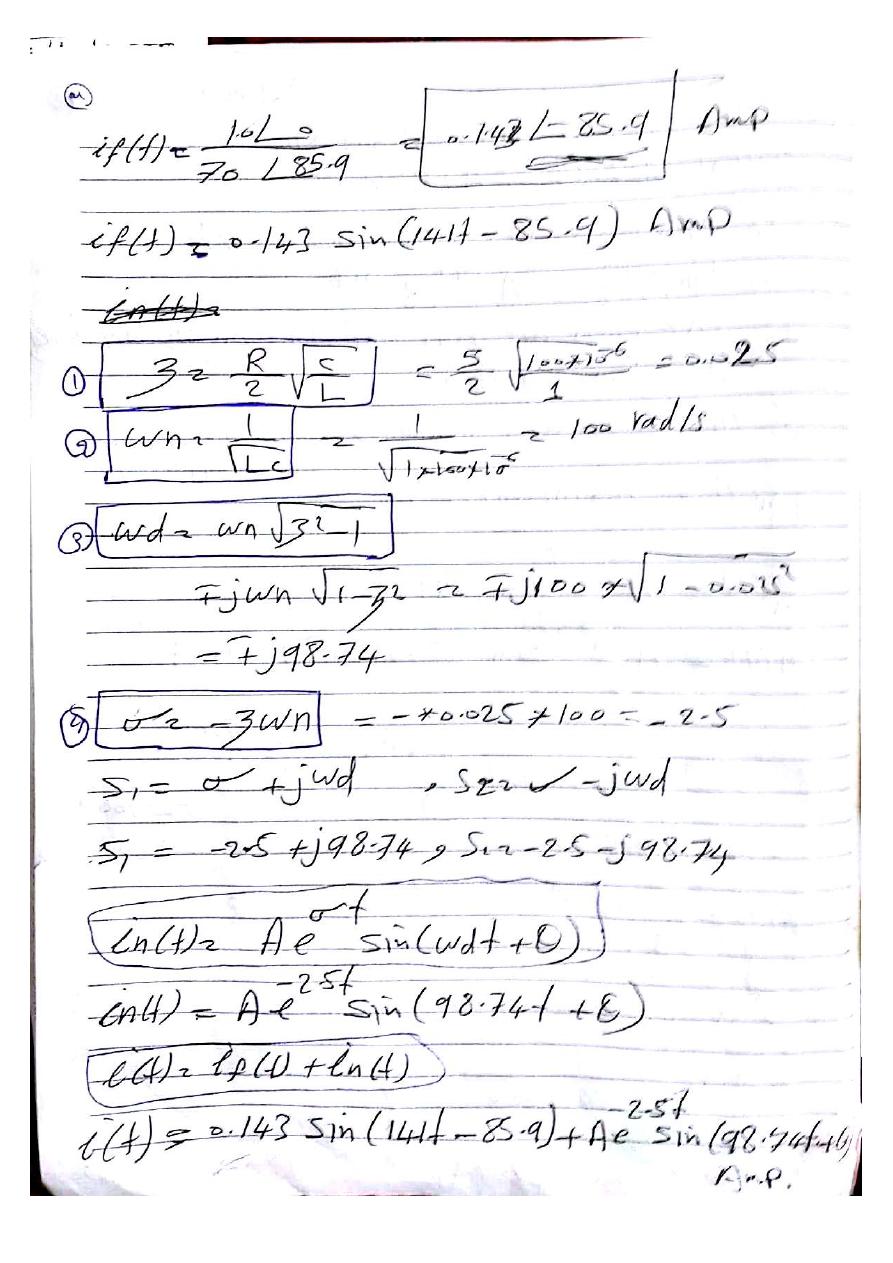 if(t) = 10∠0 / 70 ∠85.9 = 0.143 ∠-85.9 Amp
if(t) = 0.143 sin(141t - 85.9) Amp
① 3 = R/2 √(C/L) = 5/2 √(100*10^-6 / 1) = 0.025
② wn = 1/√(LC) = 1/√(1*100*10^-6) = 100 rad/s
③ wd = wn √(3²-1)
∓jwn √(1-3²) = ∓j100 * √(1-0.025²)
= ∓j98.74
④ σ = -3wn = -*0.025*100 = -2.5
S1 = σ + jwd , S2 = σ - jwd
S1 = -2.5 + j98.74 , S2 = -2.5 - j98.74
in(t) = A e^σt sin(wdt + θ)
in(t) = A e^-2.5t sin(98.74t + θ)
i(t) = if(t) + in(t)
i(t) = 0.143 sin(141t - 85.9) + A e^-2.5t sin(98.74t+θ)
Amp.